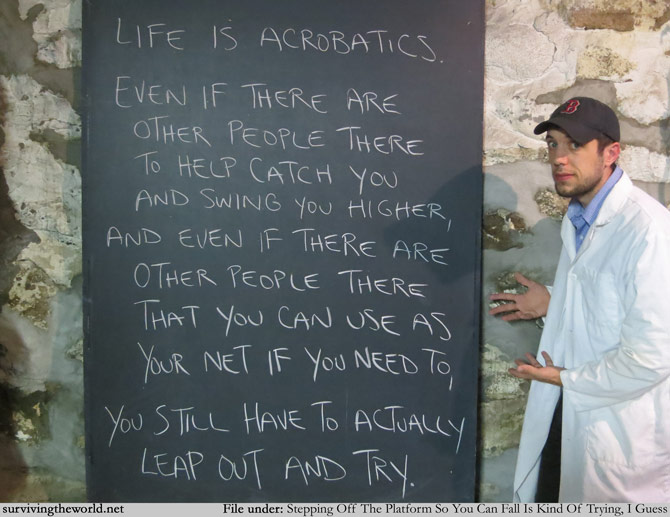 LIFE IS ACROBATICS.
EVEN IF THERE ARE
OTHER PEOPLE THERE
TO HELP CATCH YOU
AND SWING YOU HIGHER,
AND EVEN IF THERE ARE
OTHER PEOPLE THERE
THAT YOU CAN USE AS
YOUR NET IF YOU NEED TO,
YOU STILL HAVE TO ACTUALLY
LEAP OUT AND TRY.
B
survivingtheworld.net File under: Stepping Off The Platform So You Can Fall Is Kind Of Trying, I Guess